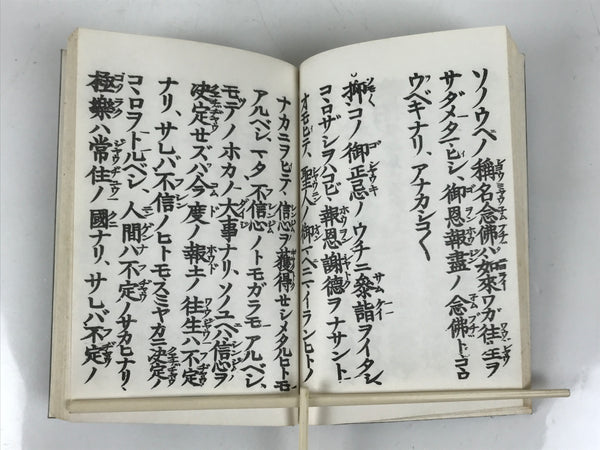 ソノウベノ稱名念佛ハ如來ワガ往生ヲ
サダメタマヒシ御恩報盡ノ念佛トコヽロ
ウベキナリ、アナカシコ〱
抑コノ御正忌ノウチニ參詣ヲイタシ、
コヽロザシヲハコビ、報恩謝德ヲナサント
オモヒテ、聖人ノ御マヘニマイランヒトノ
ナカニヲヒテ、信心ヲ獲得セシメタルヒトモ
アルベシ、マタ不信心ノトモガラモアルベシ、
モテノホカノ大事ナリ、ソノユヘハ信心ヲ
決定セズバ今度ノ報土ノ往生ハ不定
ナリ、サレバ不信ノヒトモスミヤカニ決定ノ
コヽロヲトルベシ、人間ハ不定ノサカヒナリ、
極樂ハ常住ノ國ナリ、サレバ不定ノ